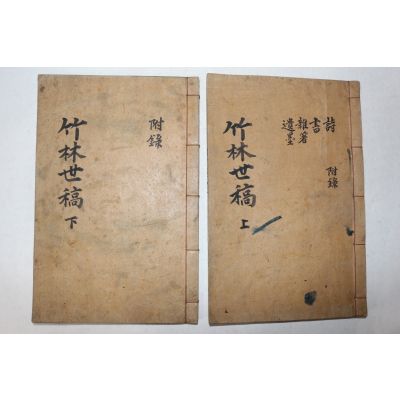 詩
書
雜著
遺墨
附錄
竹林世稿
上
附錄
竹林世稿
下